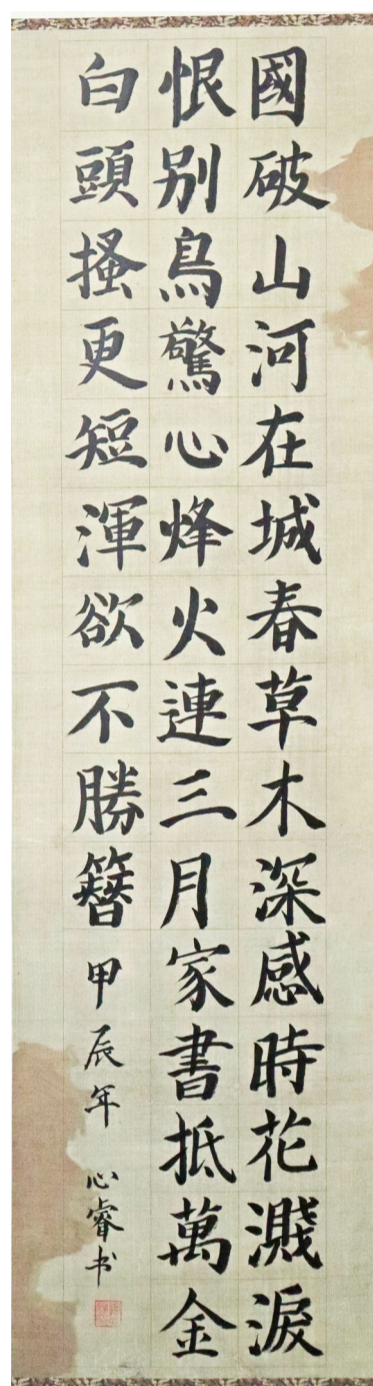 國破山河在城春草木深感時花濺淚
恨別鳥驚心烽火連三月家書抵萬金
白頭搔更短渾欲不勝簪甲辰年心睿书